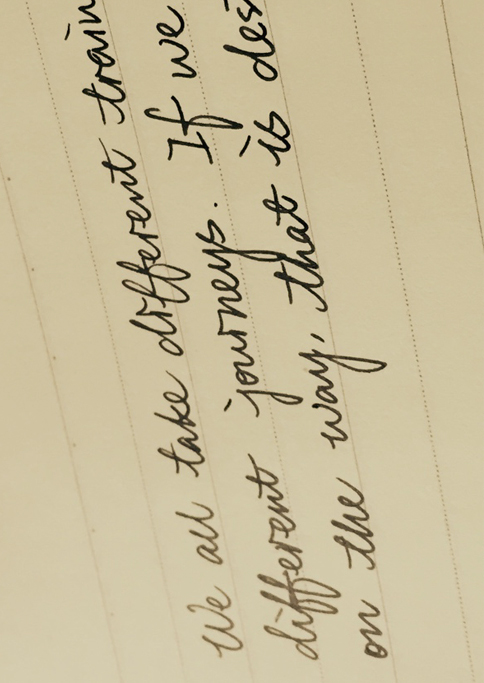 We all take different train
different journeys. If we
on the way, that is des